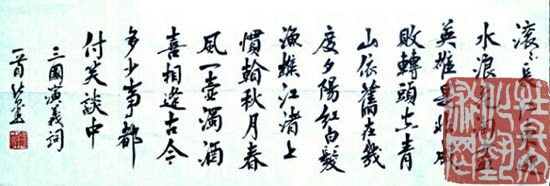 滚々長江東
水浪花淘盡
英雄是非成
敗轉頭空青
山依舊在幾
度夕陽紅白髮
漁樵江渚上
慣看秋月春
風一壺濁酒
喜相逢古今
多少事都
付笑談中
三國演義詞
一首